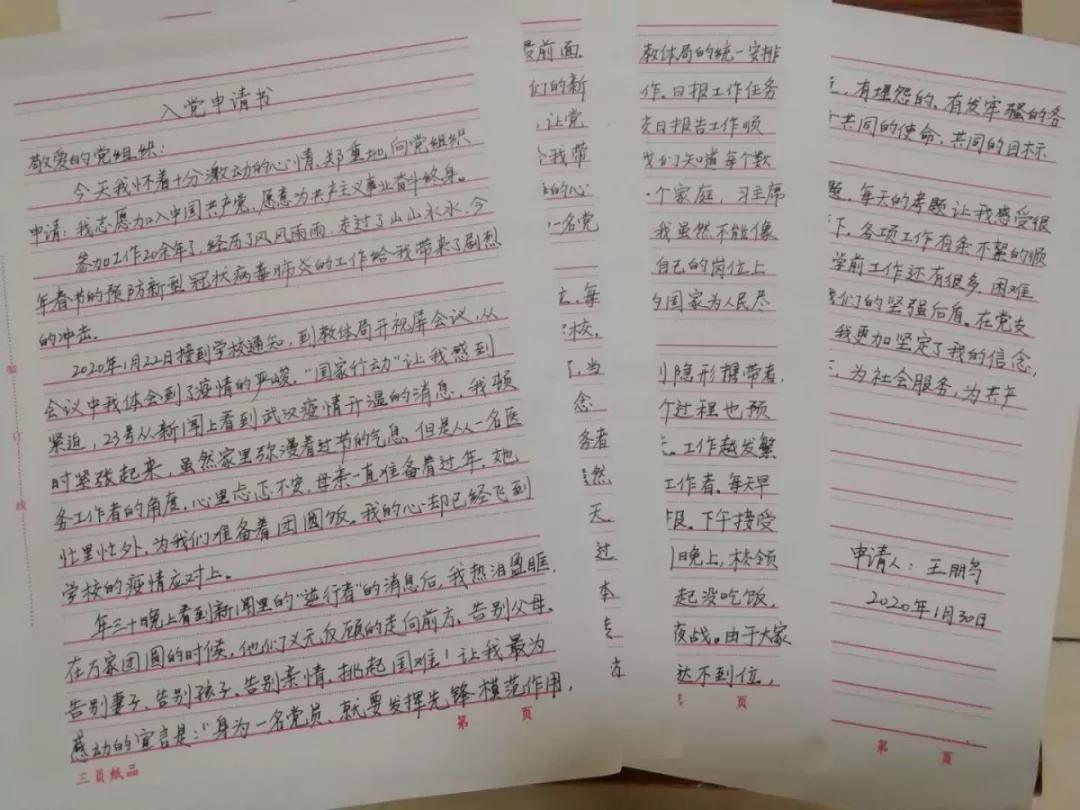 入党申请书
敬爱的党组织：
今天我怀着十分激动的心情,郑重地向党组织
申请：我志愿加入中国共产党,愿意为共产主义事业奋斗终身。
参加工作20余年了,经历了风风雨雨,走过了山山水水,今
年春节的预防新型冠状病毒肺炎的工作给我带来了剧烈
的冲击。
2020年1月22日接到学校通知,到教体局开视屏会议,从
会议中我体会到了疫情的严峻,"国家行动"让我感到
紧迫,23号从新闻上看到武汉疫情升温的消息,我顿
时紧张起来,虽然家里弥漫着过节的气息,但是从一名医
务工作者的角度,心里忐忑不安,母亲一直准备着过年,她
忙里忙外,为我们准备着团圆饭。我的心却已经飞到
学校的疫情应对上。
年三十晚上看到新闻里的"逆行者"的消息后,我热泪盈眶,
在万家团圆的时候,他们义无反顾的走向前方,告别父母,
告别妻子,告别孩子,告别亲情,挑起国难！让我最为
感动的宣言是："身为一名党员,就要发挥先锋模范作用,
第 页
三員紙品
装
订
线
前面
们的新
,让党
我带
的心
一名党
,每
校,
当
念
务者
然
天
过
本
专
教体局的统一安排
作。日报工作任务
日报告工作顺
我们知道每个数
个家庭,习主席
我虽然不能像
自己的岗位上
国家为人民尽
隐形携带者,
个过程也预
工作越发繁
工作者。每天早
报。下午接受
晚上,校领
起没吃饭,
夜战。由于大家
达不到位,
页
,有埋怨的,有发牢骚的各
共同的使命,共同的目标
题,每天的考题让我感受很
下,各项工作有条不紊的顺
学前工作还有很多,困难
我们的坚强后盾。在党支
我更加坚定了我的信念,
,为社会服务,为共产
申请人：王鹏
2020年1月30日
第 页